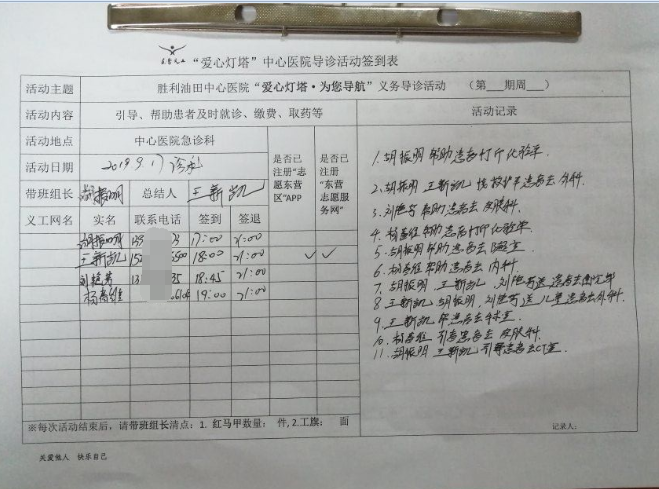 “爱心灯塔”中心医院导诊活动签到表
活动主题 胜利油田中心医院“爱心灯塔·为您导航”义务导诊活动 （第 期周 ）
活动内容 引导、帮助患者及时就诊、缴费、取药等 活动记录
活动地点 中心医院急诊科
活动日期 2019 9 17
是否已注册“志愿东营区”APP
是否已注册“东营志愿服务网”
带班组长 胡振明 总结人 王新凯
义工网名 实名 联系电话 签到 签退
胡振明 17:00 21:00
王新凯 18:00 21:00 ✓ ✓
18:45 21:00
19:00 21:00
1. 胡振明帮助患者打印化验单.
2. 胡振明 王新凯 患者去外科.
3. 帮助患者去皮肤科.
4. 帮助患者打印化验单
5. 胡振明帮助患者去
6. 帮助患者去内科.
7. 胡振明. 王新凯. 送患者去
8. 王新凯 胡振明. 送儿童患者去外科.
9. 王新凯 患者去
10. 引导患者去皮肤科.
11. 胡振明 王新凯 引导患者去CT室.
※每次活动结束后，请带班组长清点：1. 红马甲数量： 件,2.工旗： 面
记录人：
关爱他人 快乐自己